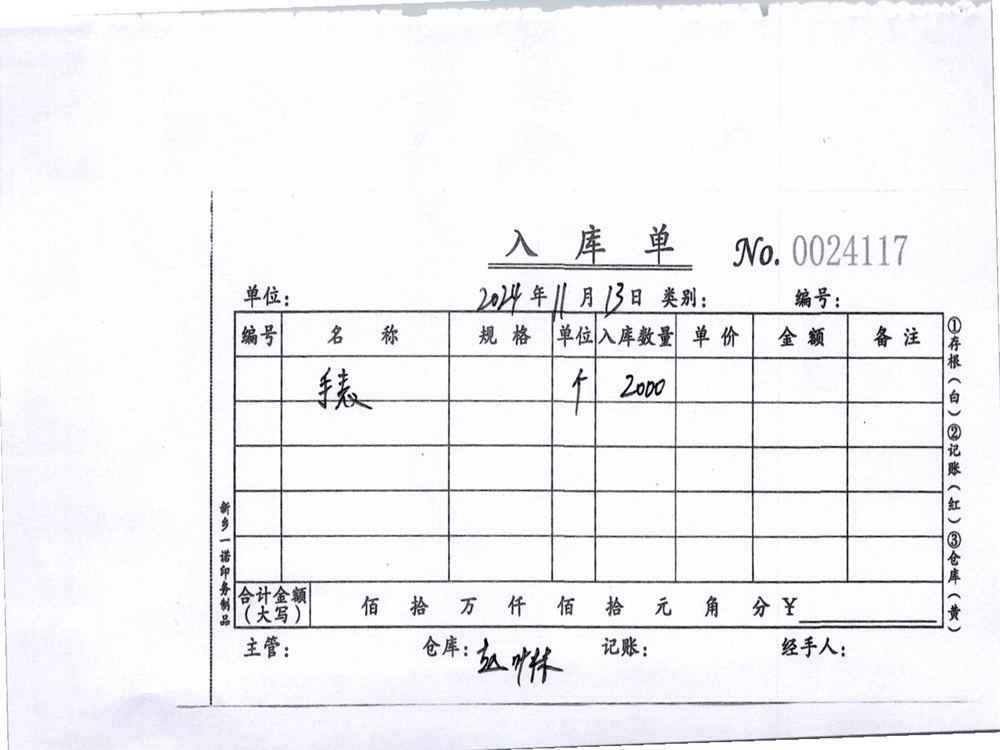 入库单 No. 0024117
单位： 2024年11月13日 类别： 编号：
编号 名称 规格 单位 入库数量 单价 金额 备注
手表 个 2000
合计金额（大写） 佰 拾 万 仟 佰 拾 元 角 分 ¥
主管： 仓库： 记账： 经手人：
①存根（白）②记账（红）③仓库（黄）
新乡一诺印务制品